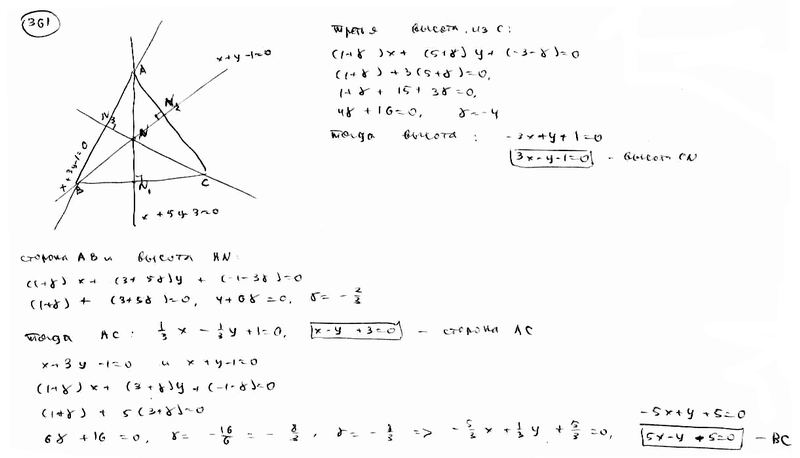 361
x+y-1=0
A
N₂
N₃
N
x+3y-1=0
B
N₁
C
x+5y-3=0
Третья высота, из C:
(1+γ)x + (5+γ)y + (-3-γ)=0
(1+γ)+3(5+γ)=0,
1+γ+15+3γ=0,
4γ+16=0, γ=-4
тогда высота: -3x+y+1=0
3x-y-1=0 - высота CN
сторона AB и высота AN:
(1+γ)x+(3+5γ)y+(-1-3γ)=0
(1+γ)+(3+5γ)=0, 4+6γ=0, γ=-2/3
тогда AC: 1/3x-1/3y+1=0, x-y+3=0 - сторона AC
x+3y-1=0 и x+y-1=0
(1+γ)x+(3+γ)y+(-1-γ)=0
(1+γ)+5(3+γ)=0
6γ+16=0, γ=-16/6=-8/3, γ=-8/3 => -5/3x+1/3y+5/3=0,
-5x+y+5=0
5x-y+5=0 - BC